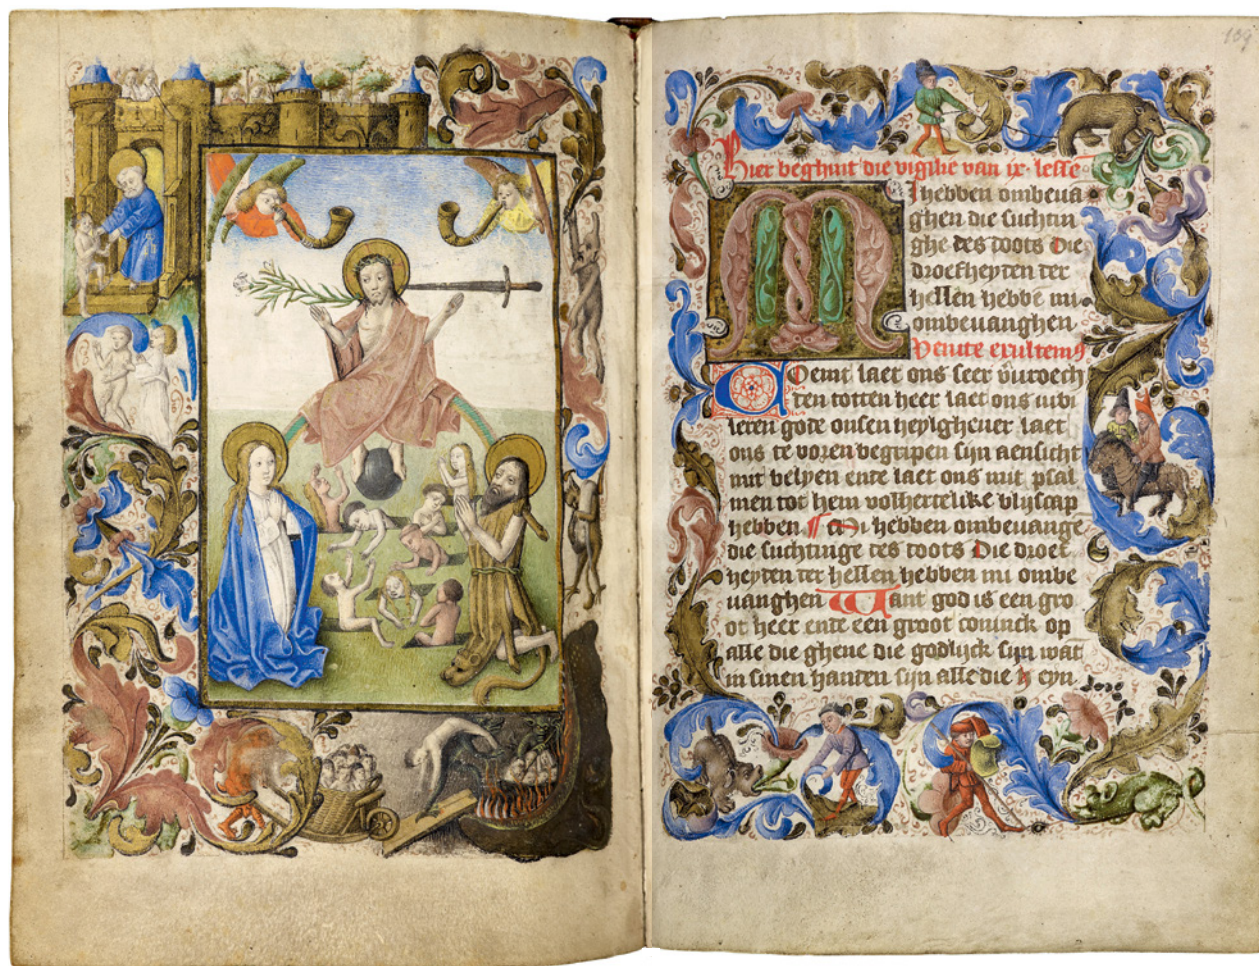 109
Hier beghint die vigilie van ix. lesse
Mi hebben ombeua
ghen die suchtin
ghe des doots die
droefheyden der
hellen hebbē mi
ombeuanghen.
Venite exultemꝰ
Coemt laet ons seer vūroech
den totten heer laet ons iubi
leren gode onsen heylgheuer laet
ons te voren begripen sijn aensicht
mit belyen ende laet ons mit psal
men tot hem volhertelike blijscap
hebben. Mi hebben ombeuange
die suchtinge des doots Die droef
heyden der hellen hebben mi ombe
uanghen Want god is een gro
ot heer ende een groot coninck op
alle die ghene die godlijck sijn wāt
in sinen handen sijn alle die eyn